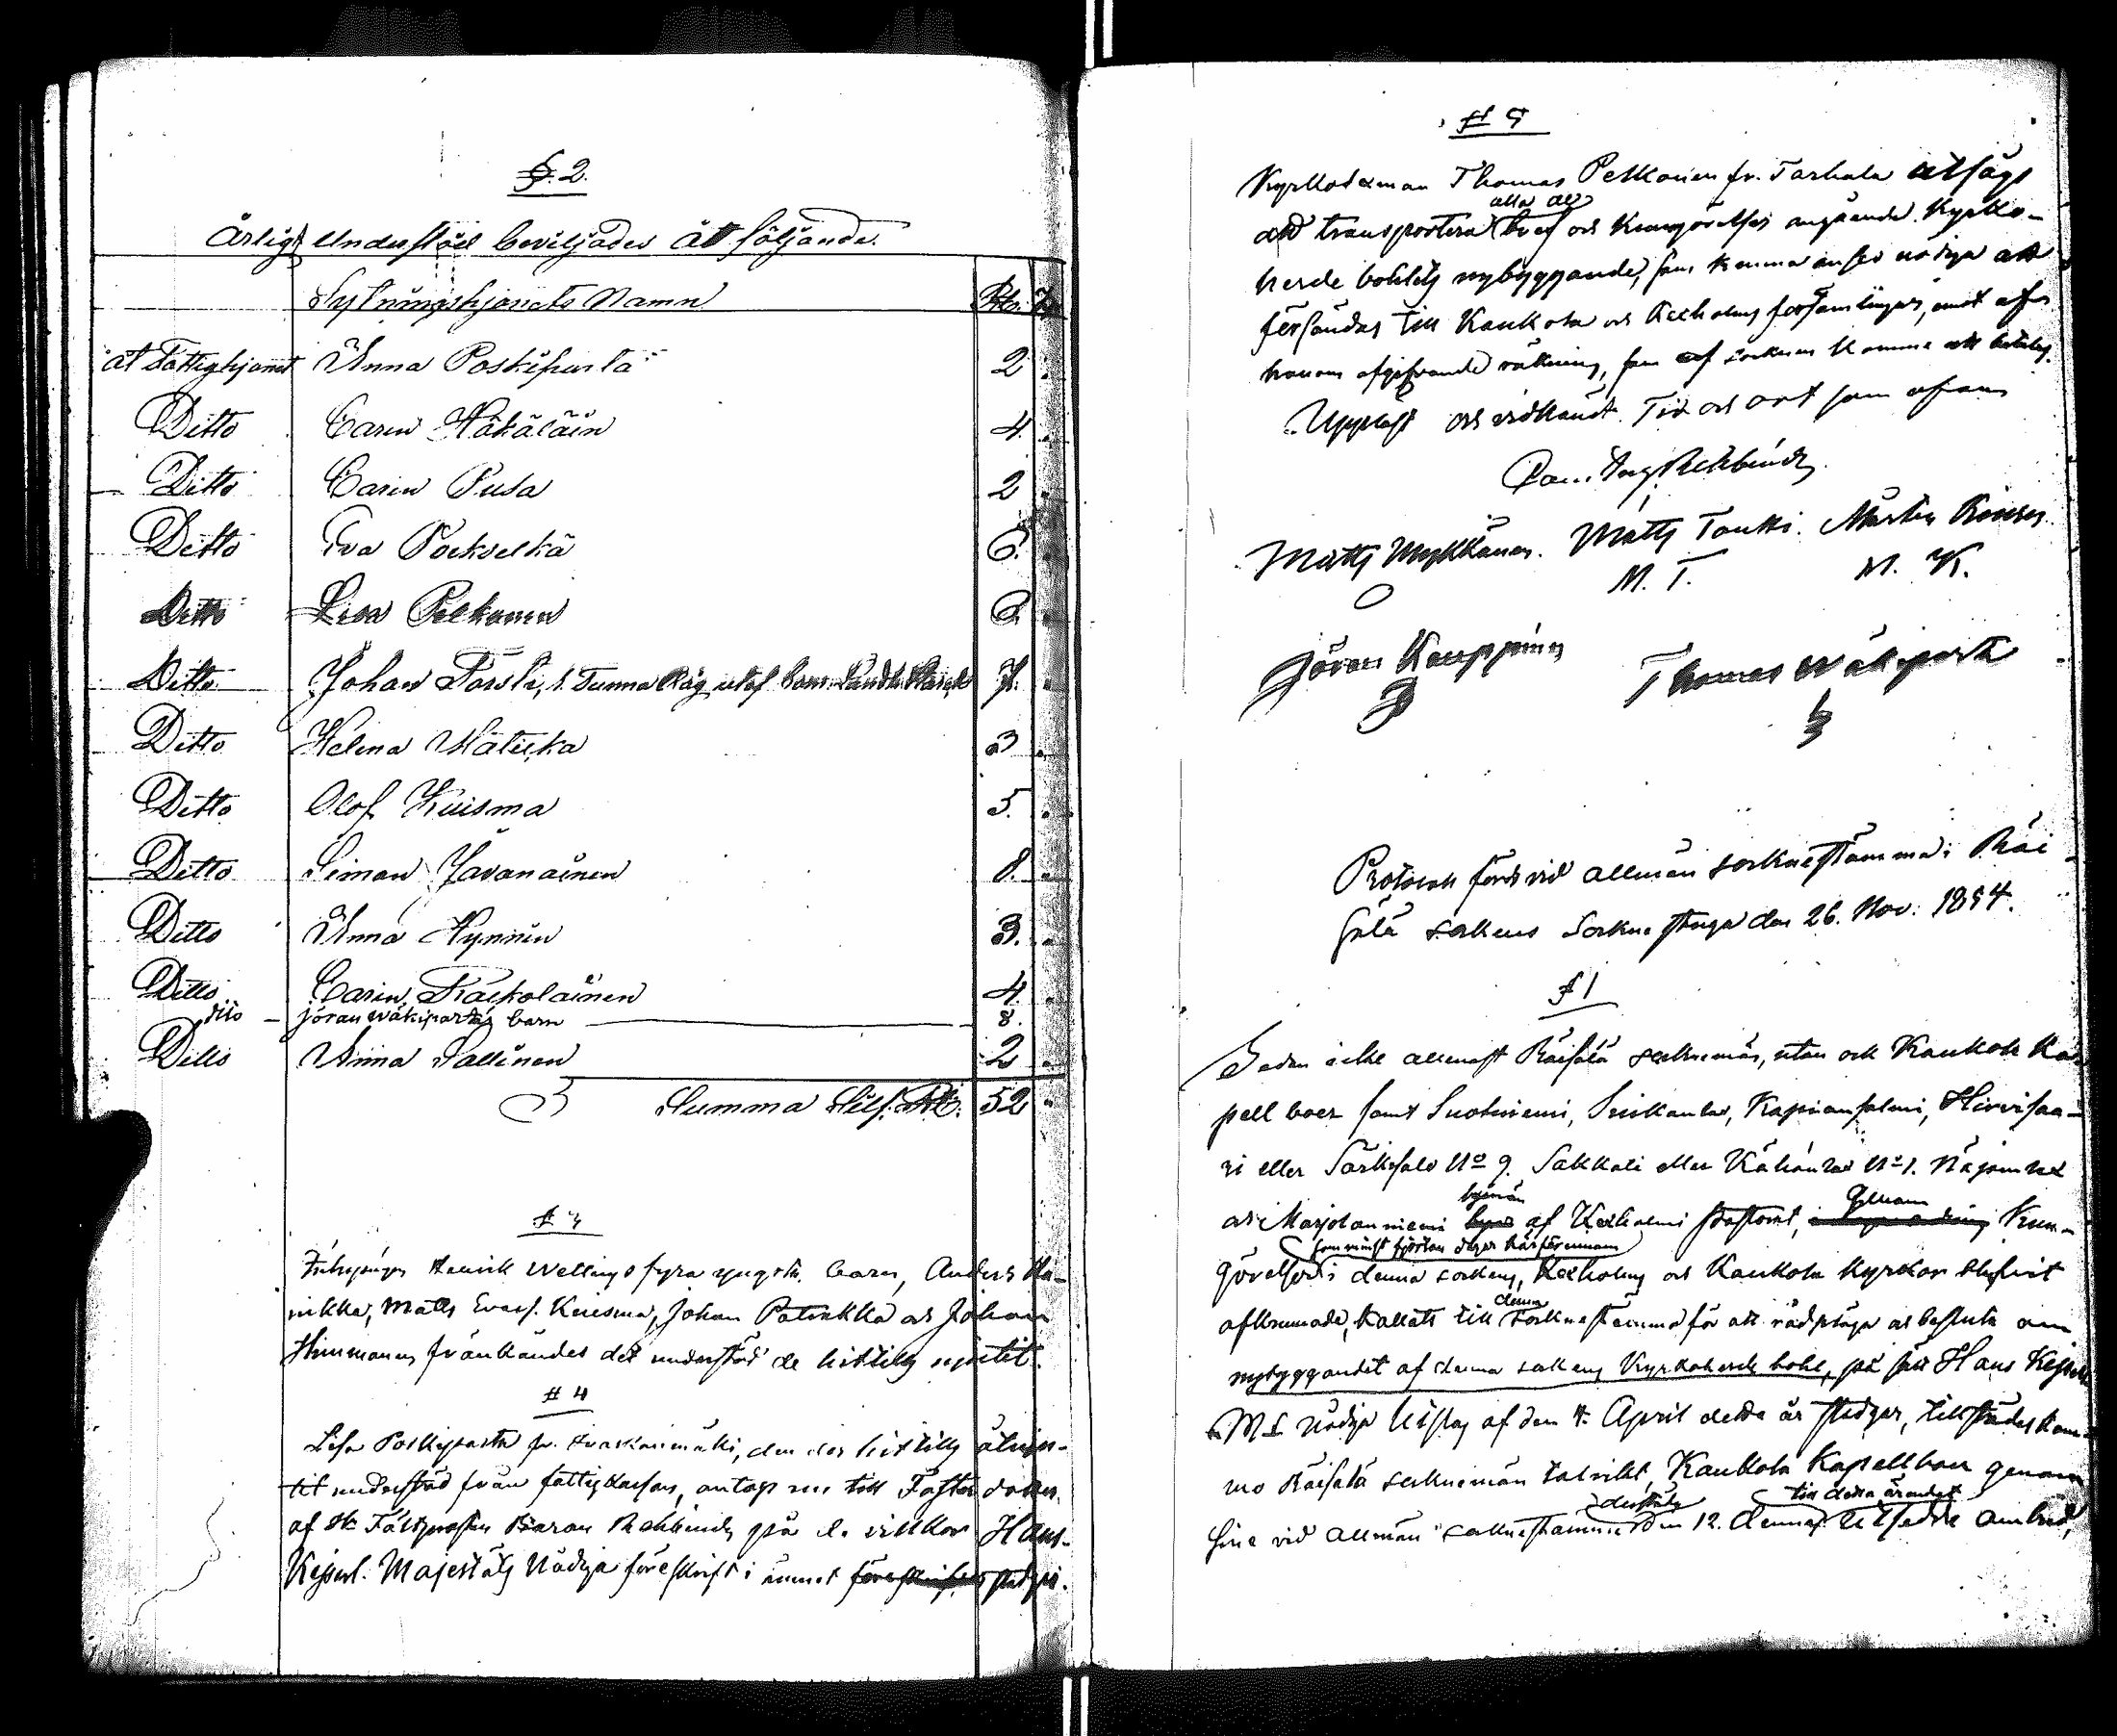 §. 2.
Årligt Understöd beviljades åt följande.
Sytningshjonets Namn Rb.
åt Fattighjonet Anna Poskiparta 2
Ditto Carin Häkäläin 4.
Ditto Carin Pusa 2
Ditto Eva Porkvelkä 6.
Ditto Lisa Pelkonen 6.
Ditto Johan Torsti, 1. Tunna Råg utaf 7.
Ditto Helena Mätiskä 3
Ditto Olof Kuisma 5.
Ditto Simon Javanainen 8.
Ditto Anna Hynnin 3.
Ditto Carin Räikoläinen 4.
dito Jöran Wäkipartas barn 8.
Ditto Anna Sallinen 2
Summa Silf. Rb. 52
§ 3
Henrik Wellings fyra yngsta barn, Anders
Matts Kuisma, Johan Potinkka och Johan
Himmanen frånkändes det understöd de hittills njutit.
§ 4
Lisa Poskiparta fr. den der hittills åtnju-
tit understöd från fattigkassan, antags nu till Foster dotter
af Hr Fältprosten Baron Rehbinder på de villkor Hans
Kejserl. Majestäts Nådiga föreskrift i ämnet stadgar.
§ 5
Kyrkovärden Thomas Pelkonen fr. Tarhala åtsågs
att transportera alla de bref och Kungörelser angående Kyrko-
herde bohlets nybyggande, som kunna anses nödiga att
försändas till Kaukola och Kexholms församlingar, emot af
honom afgifvande räkning, som af socknen komme att betalas.
Uppläst och vidkändt. Tid och ort som ofvan
Rehbinder
Matts Mykkänen. Matts Toukki. Mårten
M. T. M. K.
Jöran Kauppinen Thomas Wäkiparta
Protocoll fördt vid allmän socknestämma i Räi
sälä sockens Sockne stuga den 26. Nov: 1854.
§ 1
Sedan icke allenast Räisälä socknemän, utan ock Kaukola Ka-
pell boer samt Suotniemi, Kapiansalmi, Hirvisaa-
ri eller Särkisalo No 9. Sakkali eller Kähönlax No 1. Näpinlax
och Marjolanniemi byemän af Kexholms Genom Kun-
som minst fjorton dagar härförinnan
görelser i denna sockens, Kexholms och Kaukola Kyrkor
afkunnade, kallats till denna Sockne stämma för att rådpläga och besluta om
nybyggandet af denna sockens Kyrkoherde bohl, på sätt Hans Kejserl
M:s Nådiga Utslag af den 4. April detta år stadgar, tillstädes kom-
mo Räisälä sockneman talrikt, Kaukola Kapellboer genom
sine vid allmän socknestämma derstädes den 12. dennes till detta ärendet utsedde ombud,